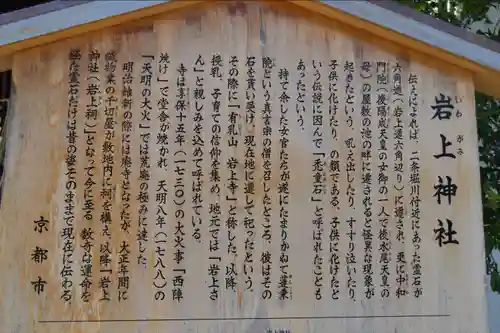 岩上神社
いわ がみ
伝えによれば、二条堀川付近にあった霊石が
六角通(岩上通六角辺り)に遷され、更に中和
門院(後陽成天皇の女御の一人で後水尾天皇の
母)の屋敷の池の畔に遷されると怪異な現象が
起きたという。吼え出したり、すすり泣いたり、
子供に化けたり、の類である。子供に化けたと
いう伝説に因んで「禿童石」と呼ばれたことも
あったという。
持て余した女官たちが遂にたまりかねて蓮乗
院という真言宗の僧を召したところ、彼はその
石を貰い受け、現在地に遷して祀ったという。
その際に「有乳山 岩上寺」と称した。以降、
授乳、子育ての信仰を集め、地元では「岩上さ
ん」と親しみを込めて呼ばれている。
寺は享保十五年(一七三〇)の大火事「西陣
焼け」で堂舎が焼かれ、天明八年(一七八八)の
「天明の大火」では荒廃の極みに達した。
明治維新の際には廃寺となったが、大正年間に
織物業の千切屋が敷地内に祠を構え、以降「岩上
神社(岩上祠)」となって今に至る。数奇な運命を
経た霊石だけは昔の姿そのままで現在に伝わる
京都市